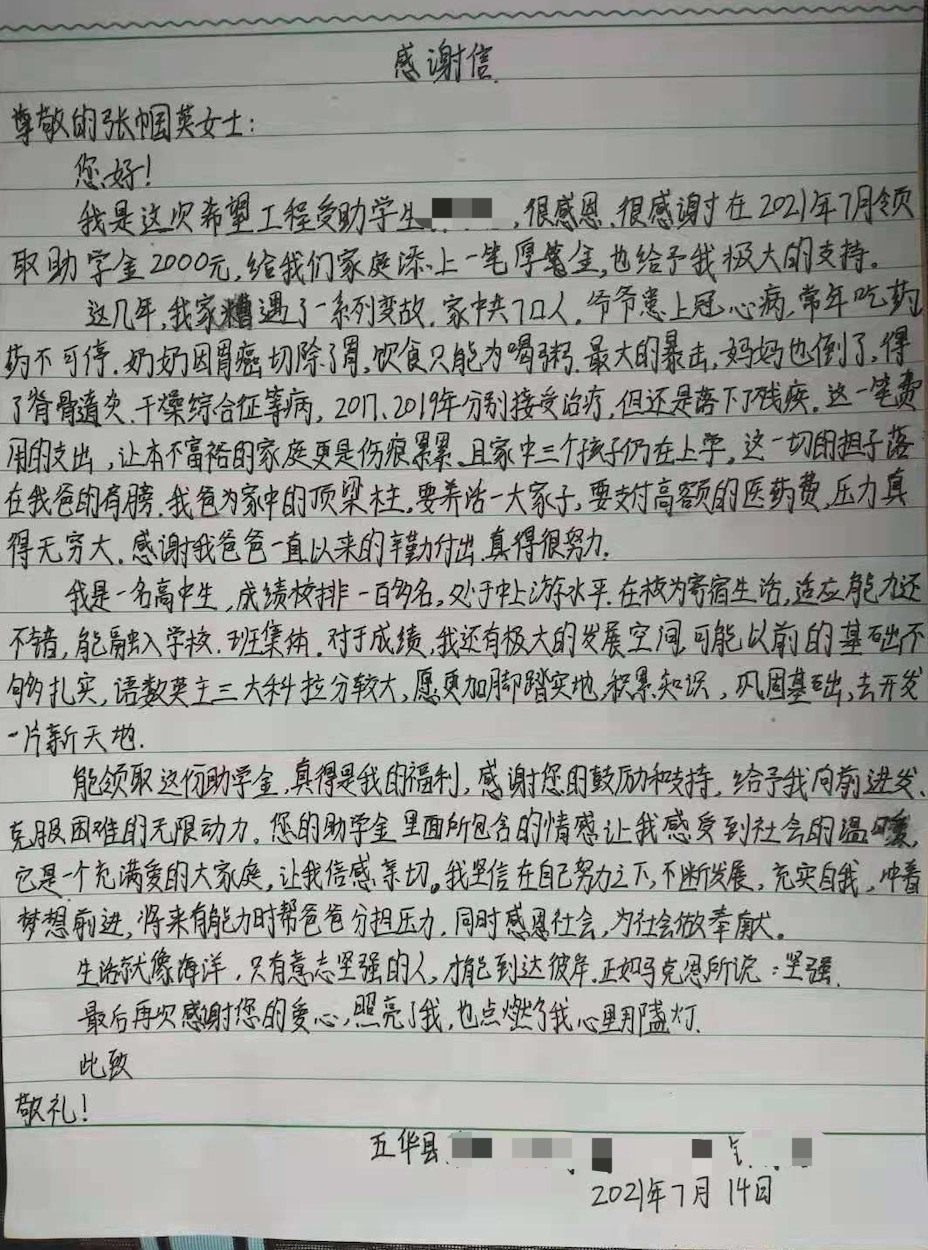 感谢信
尊敬的张帼英女士：
您好！
我是这次希望工程受助学生，很感恩、很感谢在2021年7月领
取助学金2000元，给我们家庭添上一笔厚金，也给予我极大的支持。
这几年，我家遭遇了一系列变故．家中共7口人．爷爷患上冠心病，常年吃药
药不可停．奶奶因胃癌切除了胃，饮食只能为喝粥．最大的暴击，妈妈也倒了，得
了脊骨遗次、干燥综合征等病，2017、2019年分别接受治疗，但还是落下了残疾．这一笔费
用的支出，让本不富裕的家庭更是伤痕累累、且家中三个孩子仍在上学。这一切的担子落
在我爸的肩膀．我爸为家中的顶梁柱，要养活一大家子，要支付高额的医药费，压力真
得无穷大．感谢我爸爸一直以来的辛勤付出，真得很努力．
我是一名高中生，成绩校排一百多名，处于中上游水平．在校为寄宿生活，适应能力还
不错，能融入学校、班集体．对于成绩，我还有极大的发展空间，可能以前的基础不
够扎实，语数英主三大科拉分较大，愿更加脚踏实地，积累知识，巩固基础，去开发
一片新天地．
能领取这份助学金，真得是我的福利，感谢您的鼓励和支持，给予我向前进发、
克服困难的无限动力。您的助学金里面所包含的情感让我感受到社会的温暖，
它是一个充满爱的大家庭，让我倍感亲切。我坚信在自己努力之下，不断发展，充实自我，冲着
梦想前进，将来有能力时帮爸爸分担压力，同时感恩社会，为社会做奉献。
生活就像海洋，只有意志坚强的人，才能到达彼岸．正如马克思所说：坚强．
最后再次感谢您的爱心，照亮了我，也点燃了我心里那盏灯．
此致
敬礼！
五华县
2021年7月14日